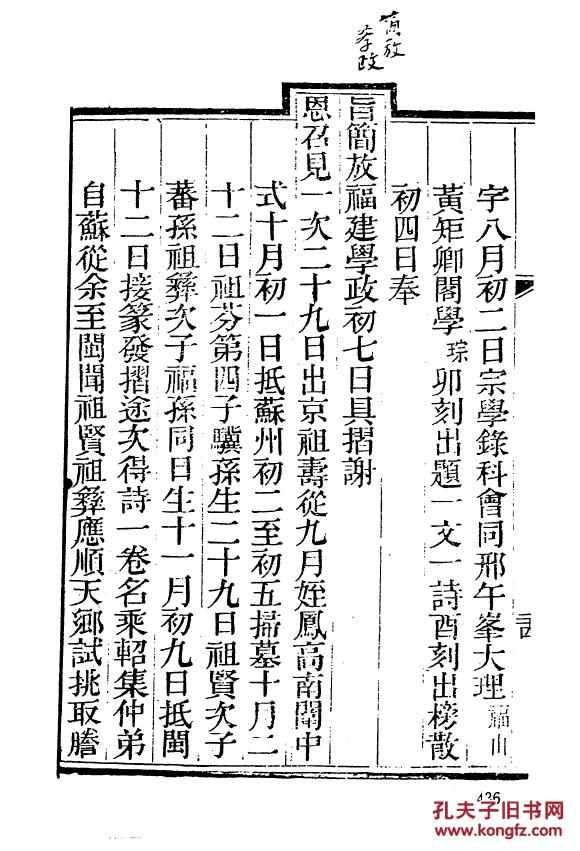 簡放
學政
字八月初二日宗學錄科會同邢午峯大理福山
黃矩卿閣學琮卯刻出題一文一詩酉刻出榜散
初四日奉
旨簡放福建學政初七日具摺謝
恩召見一次二十九日出京祖壽從九月姪鳳高南闈中
式十月初一日抵蘇州初二至初五掃墓十月二
十二日祖芬第四子驥孫生二十九日祖賢次子
蕃孫祖彝次子福孫同日生十一月初九日抵閩
十二日接篆發摺途次得詩一卷名乘軺集仲弟
自蘇從余至閩聞祖賢祖彝應順天鄉試挑取謄
436
孔夫子旧书网
www.kongfz.com